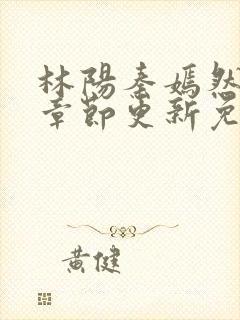 林陽秦嫣然
章節更新免
黃健